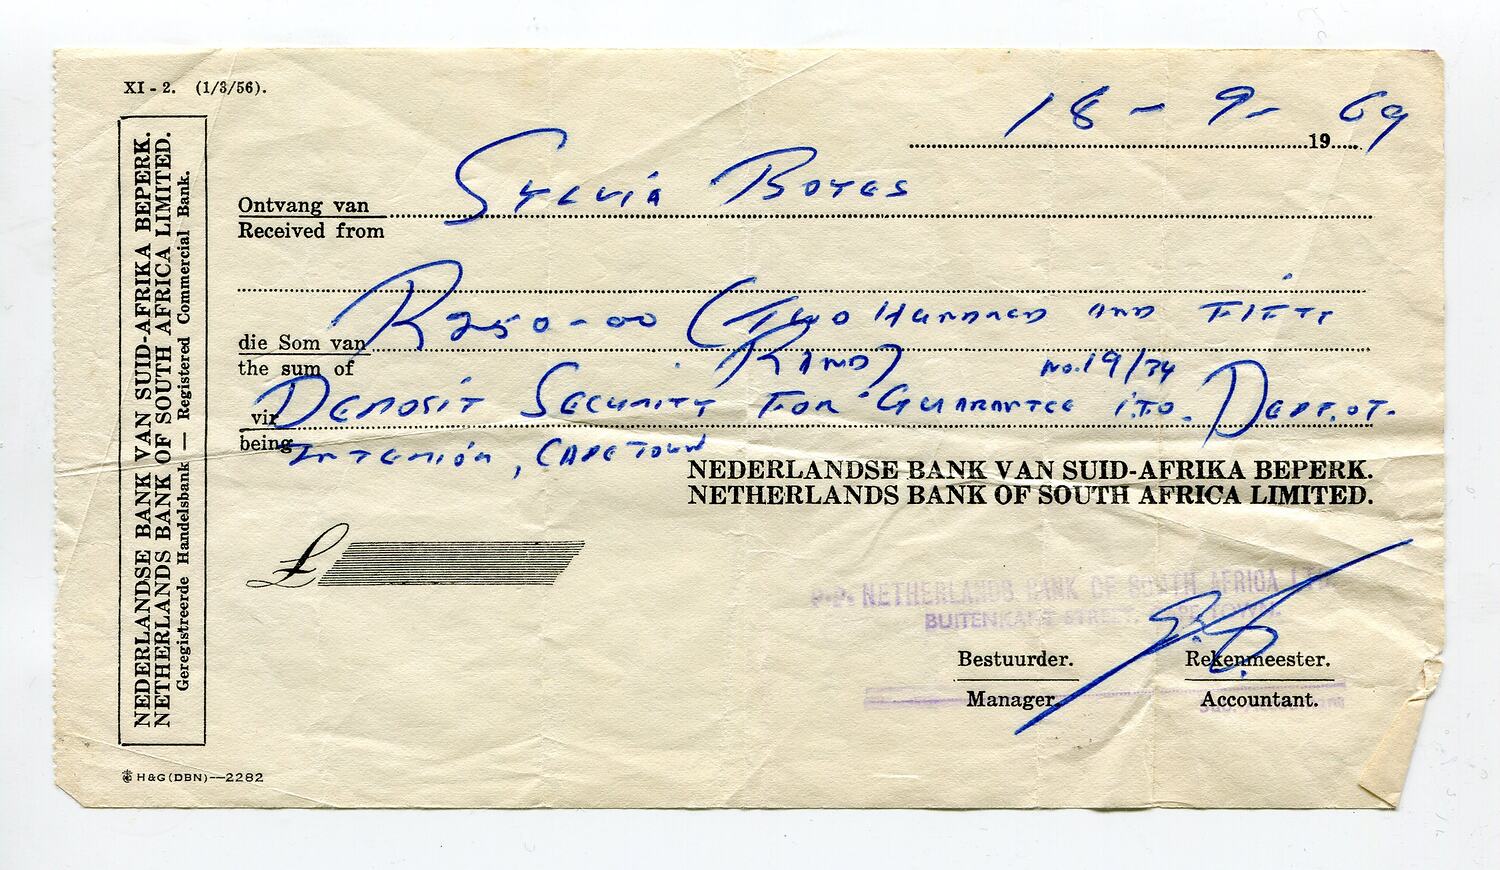 XI - 2. (1/3/56).
18 - 9 - 1969
NEDERLANDSE BANK VAN SUID-AFRIKA BEPERK.
NETHERLANDS BANK OF SOUTH AFRICA LIMITED.
Geregistreerde Handelsbank — Registered Commercial Bank.
Ontvang van
Received from
Sylvia Botes
die Som van
the sum of
R250-00 (Two Hundred and Fifty
Rand)
No. 19/34
vir
being
Deposit Security for Guarantee i.t.o. Dept. of.
Interior, Cape Town
NEDERLANDSE BANK VAN SUID-AFRIKA BEPERK.
NETHERLANDS BANK OF SOUTH AFRICA LIMITED.
£
P.P. NETHERLANDS BANK OF SOUTH AFRICA LTD.
BUITENKANT STREET, CAPE TOWN.
Bestuurder.
Manager.
Rekenmeester.
Accountant.
H&G (DBN)—2282